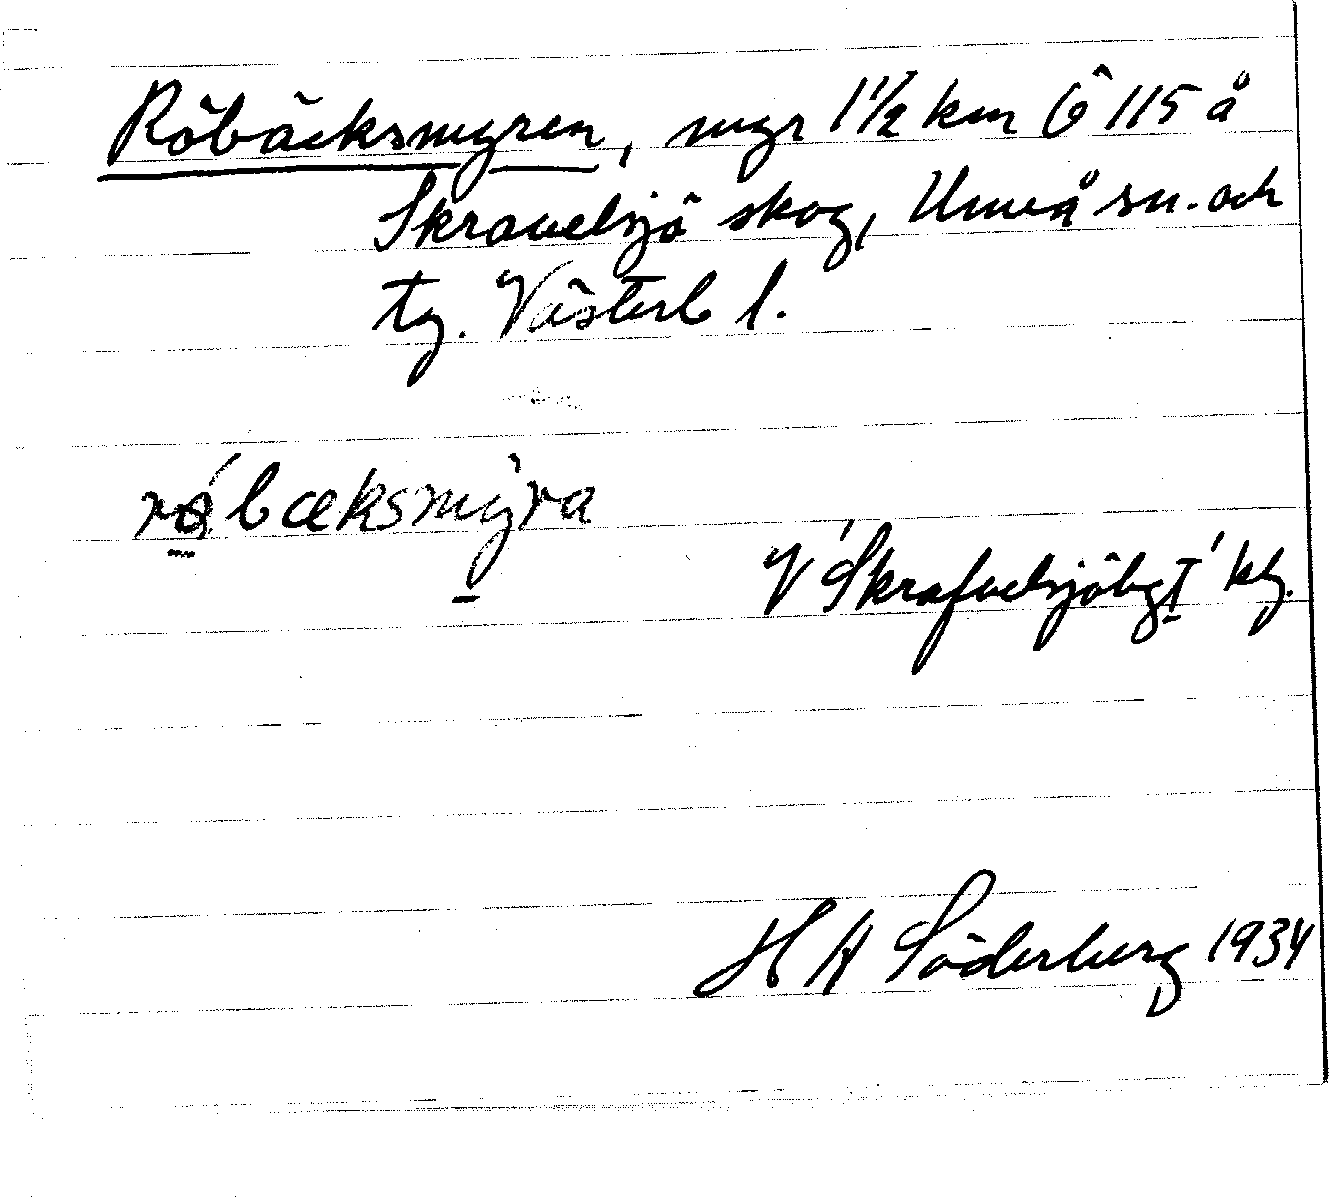 Röbäcksmyren, myr 1 1/2 km Ö 115 å
Skravelsjö skog, Umeå sn. och
tg. Västerb l.
röbæksmyra
V 'Skrafvelsjöbg T' kg.
H A Söderberg 1934